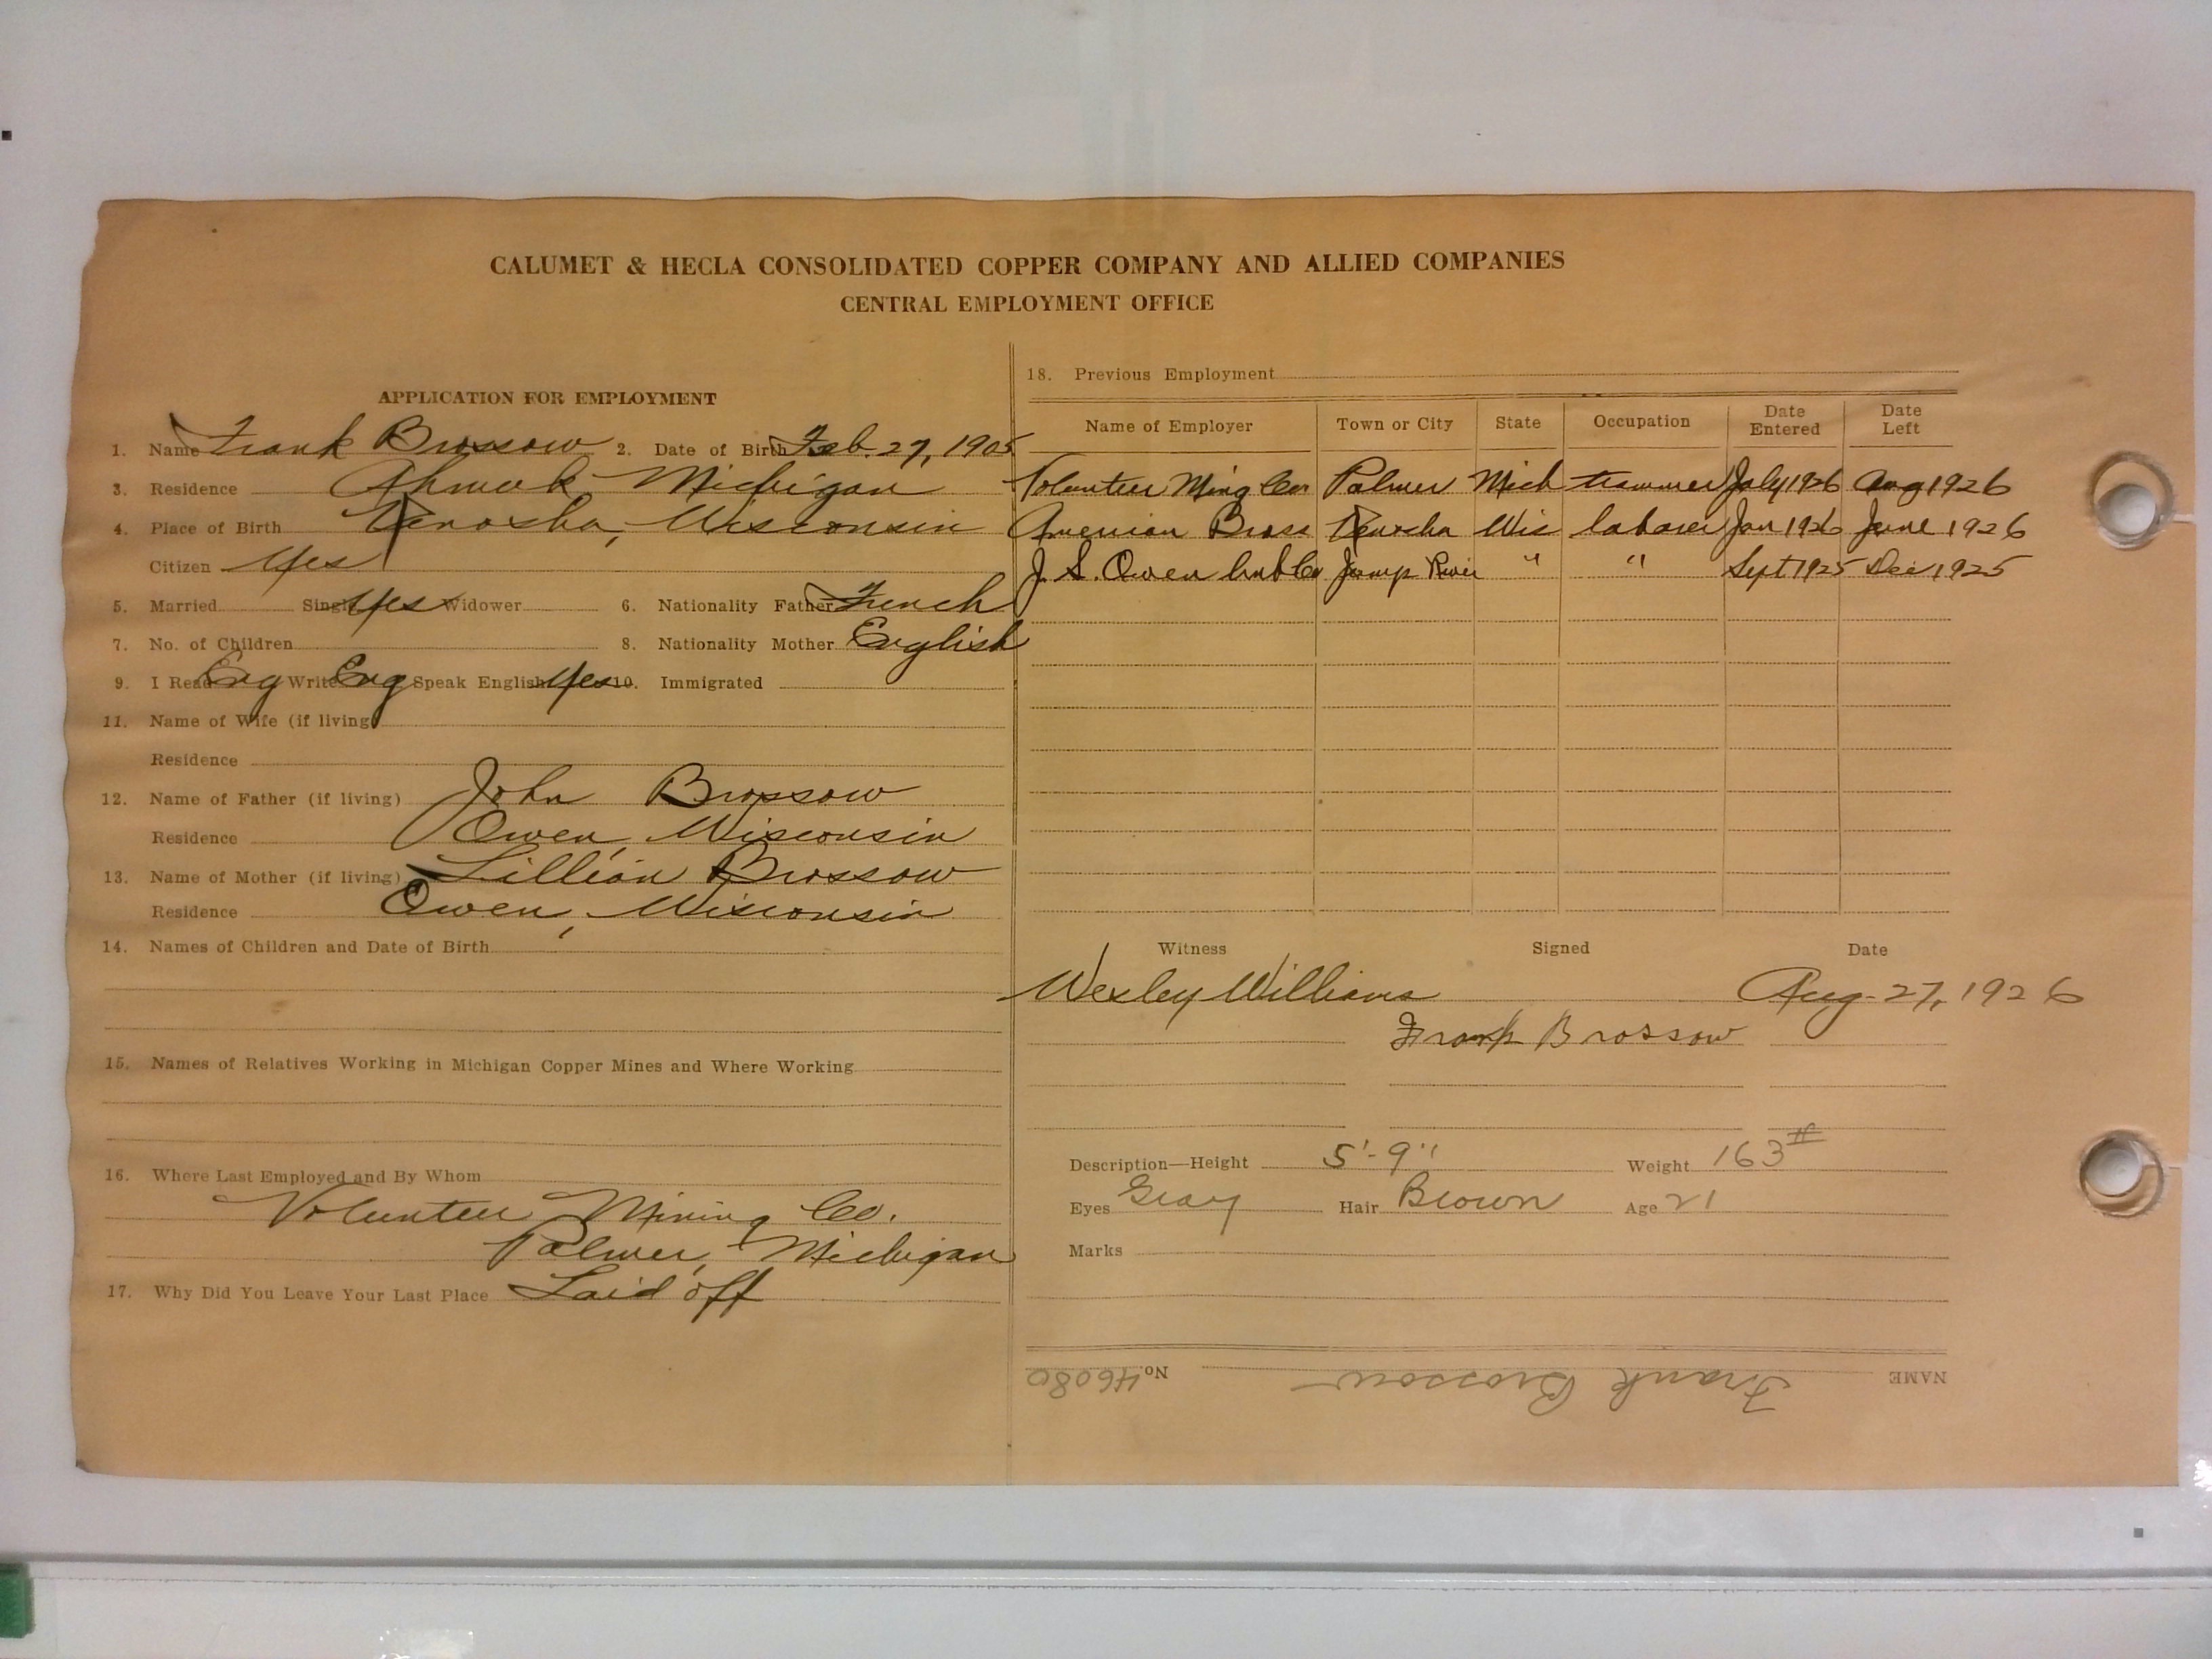 CALUMET & HECLA CONSOLIDATED COPPER COMPANY AND ALLIED COMPANIES
CENTRAL EMPLOYMENT OFFICE
APPLICATION FOR EMPLOYMENT
1. Name Frank Brossow 2. Date of Birth Feb. 27, 1905
3. Residence Ahmeek Michigan
4. Place of Birth Kenosha, Wisconsin
Citizen Yes
5. Married Single Yes Widower 6. Nationality Father French
7. No. of Children 8. Nationality Mother English
9. I Read Eng Write Eng Speak English Yes 10. Immigrated
11. Name of Wife (if living)
Residence
12. Name of Father (if living) John Brossow
Residence Owen, Wisconsin
13. Name of Mother (if living) Lillian Brossow
Residence Owen, Wisconsin
14. Names of Children and Date of Birth
15. Names of Relatives Working in Michigan Copper Mines and Where Working
16. Where Last Employed and By Whom
Volunteer Mining Co.
Palmer, Michigan
17. Why Did You Leave Your Last Place Laid off
18. Previous Employment
Name of Employer Town or City State Occupation Date Entered Date Left
Volunteer Ming Co Palmer Mich trammer July 1926 Aug 1926
American Brass Kenosha Wis laborer Jan 1926 June 1926
J. S. Owen Lmb Co Jump River " " Sept 1925 Dec 1925
Witness Signed Date
Wesley Williams Aug-27, 1926
Frank Brossow
Description—Height 5'-9" Weight 163#
Eyes Gray Hair Brown Age 21
Marks
NAME Frank Brossow No. 46080